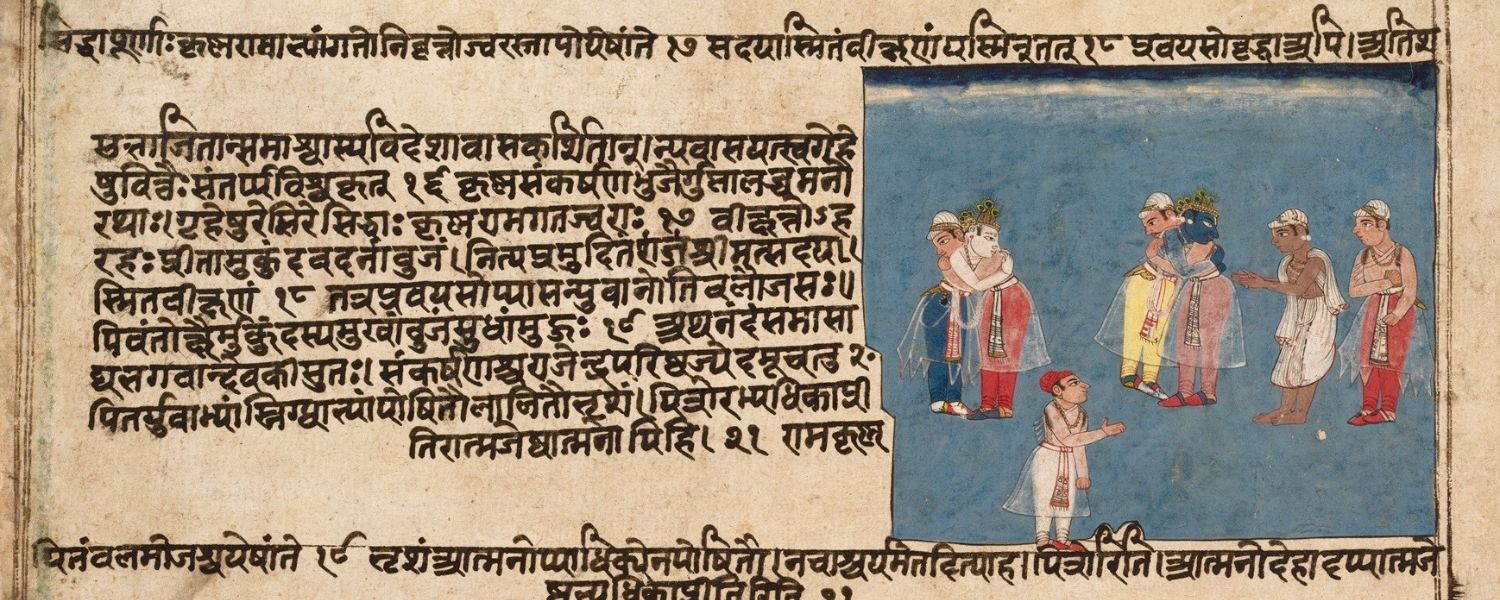 सिद्धापूर्णाः कृष्णरामाभ्यांगतोनिवृत्तोज्वरस्तापोयेषांते १७ सदयास्मितंवीक्षणंयस्मिन्तत् १८ प्रवयसोवृद्धाअपि।अतिश
जितान्समाश्वास्यविदेशावासकर्शितान्।न्यवासयत्स्वगेहे
षुवित्तैःसंतर्प्यविश्वकृत् १६ कृष्णसंकर्षणभुजैर्गुप्तालब्धमनो
रथाः।गृहेषुरेमिरेसिद्धाः कृष्णरामगतज्वराः १७ वीक्षन्तोऽह
रहःप्रीतामुकुंदवदनांबुजं।नित्यप्रमुदितंश्रीमत्सदया।
स्मितवीक्षणं १८ तत्रप्रवयसोप्यासन्युवानोतिबलौजसः॥
पिवंतोक्षैर्मुकुंदस्यमुखांबुजसुधांमुहुः १९ अथनंदंसमासा
द्यभगवान्देवकीसुतः।संकर्षणश्चराजेन्द्रपरिष्वज्येदमूचतु २०
पितर्युवाभ्यांस्निग्धाभ्यांपोषितौलालितौभृशं।पित्रोरभ्यधिकाप्री
तिरात्मजेष्वात्मनोपिहि। २१ रामकृष्ण
पितंबलमोजश्चयेषांते १९ भृशंआत्मनोप्याधिक्येनपोषितौ।नचाश्चर्यमेतदित्याह।पित्रोरिति।आत्मनोदेहादप्यात्मजे
ष्वभ्यधिकाप्रीतिरिति २१